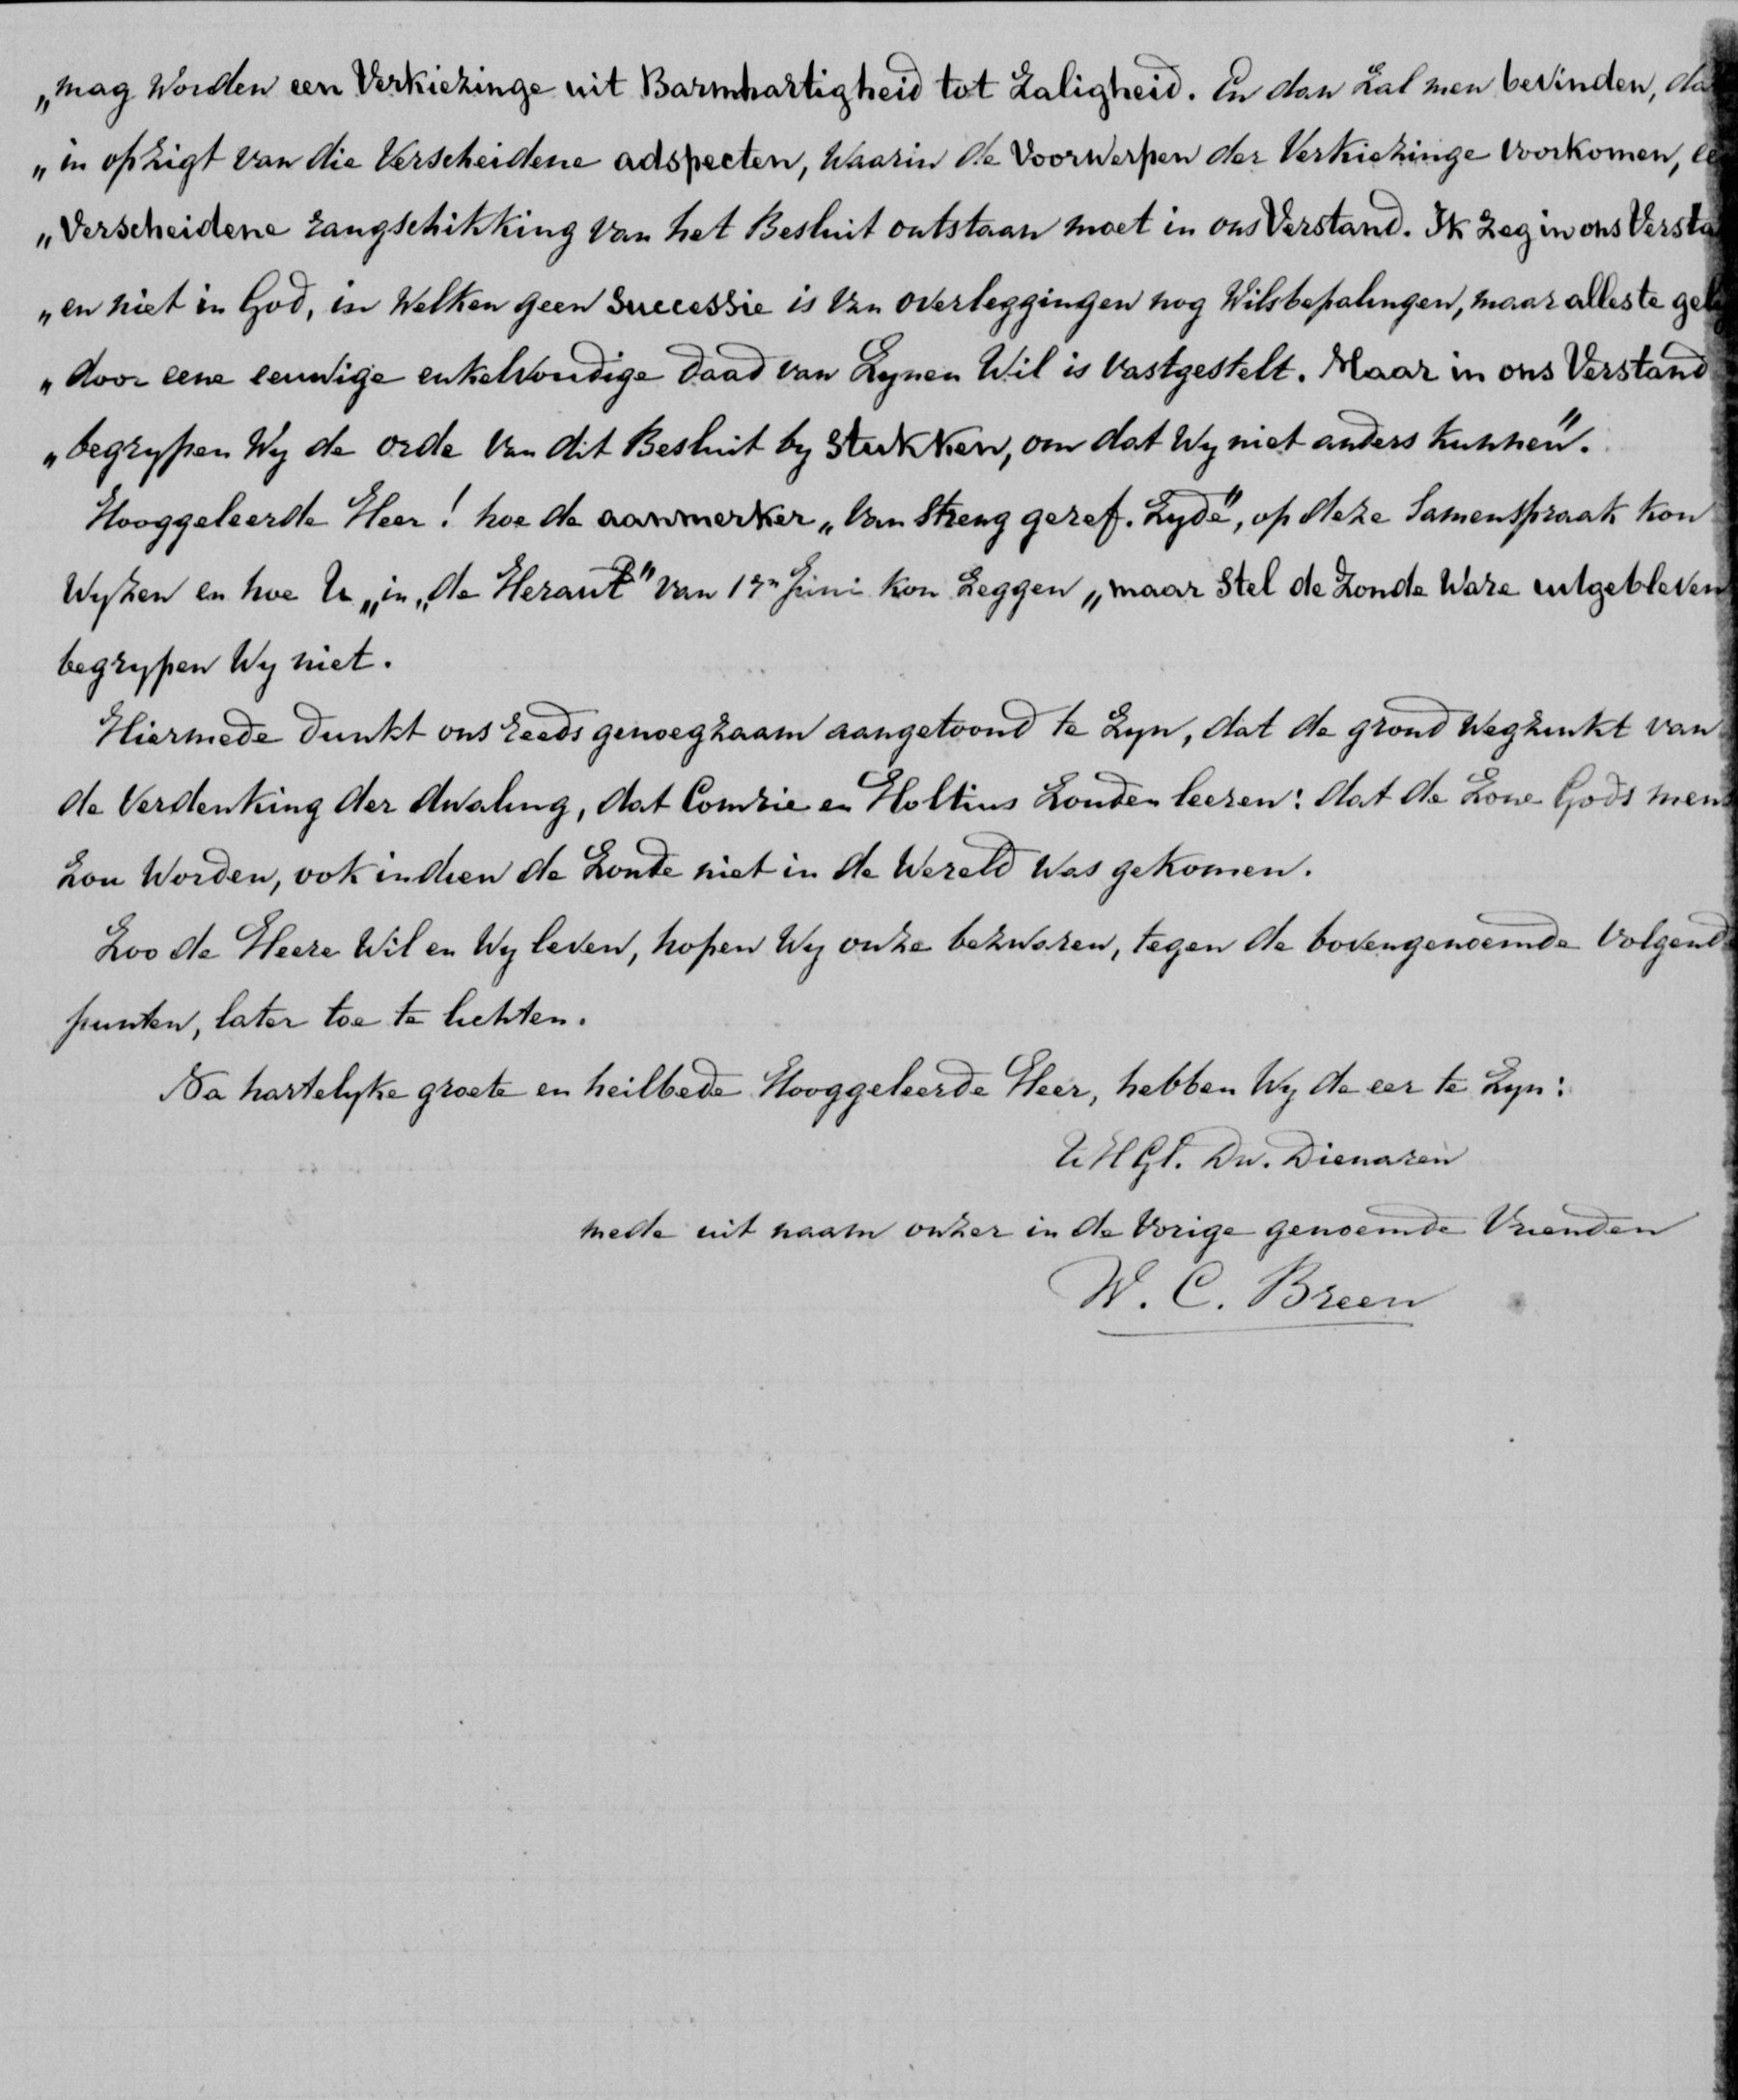 „mag Worden een Verkiezinge uit Barmhartigheid tot Zaligheid. En dan Zal men bevinden, da
„in opzigt van die Verscheidene adspecten, Waarin de Voorwerpen der Verkiezinge Voorkomen, ee
„Verscheidene rangschikking van het Besluit ontstaan moet in ons Verstand. Ik Zeg in ons Versta
„en niet in God, in Welken geen Successie is Van overleggingen nog Wilsbepalingen, maar alles te gel
„door eene eeuwige enkelvoudige daad van Zynen Wil is Vastgestelt. Maar in ons Verstand
„begrypen Wy de orde Van dit Besluit by Stukken, om dat Wy niet anders kunnen".
Hooggeleerde Heer! hoe de aanmerker „Van Streng geref. Zyde", op deze Samenspraak kon
Wyzen en hoe U „in „de Heraut" van 17n Juni kon Zeggen „maar Stel de Zonde Ware uitgebleven
begrypen Wy niet.
Hiermede dunkt ons reeds genoegzaam aangetoond te Zyn, dat de grond Wegzinkt van
de Verdenking der dwaling, dat Comrie en Holtius Zouden leeren: dat de Zone Gods mens
Zou Worden, ook indien de Zonde niet in de Wereld Was gekomen.
Zoo de Heere Wil en Wy leven, hopen Wy onze bezwaren, tegen de bovengenoemde Volgende
punten, later toe te lichten.
Na hartelyke groete en heilbede Hooggeleerde Heer, hebben Wy de eer te Zyn:
UHGl. Dw. Dienaren
mede uit naam onzer in de Vorige genoemde Vrienden
W. C. Breen